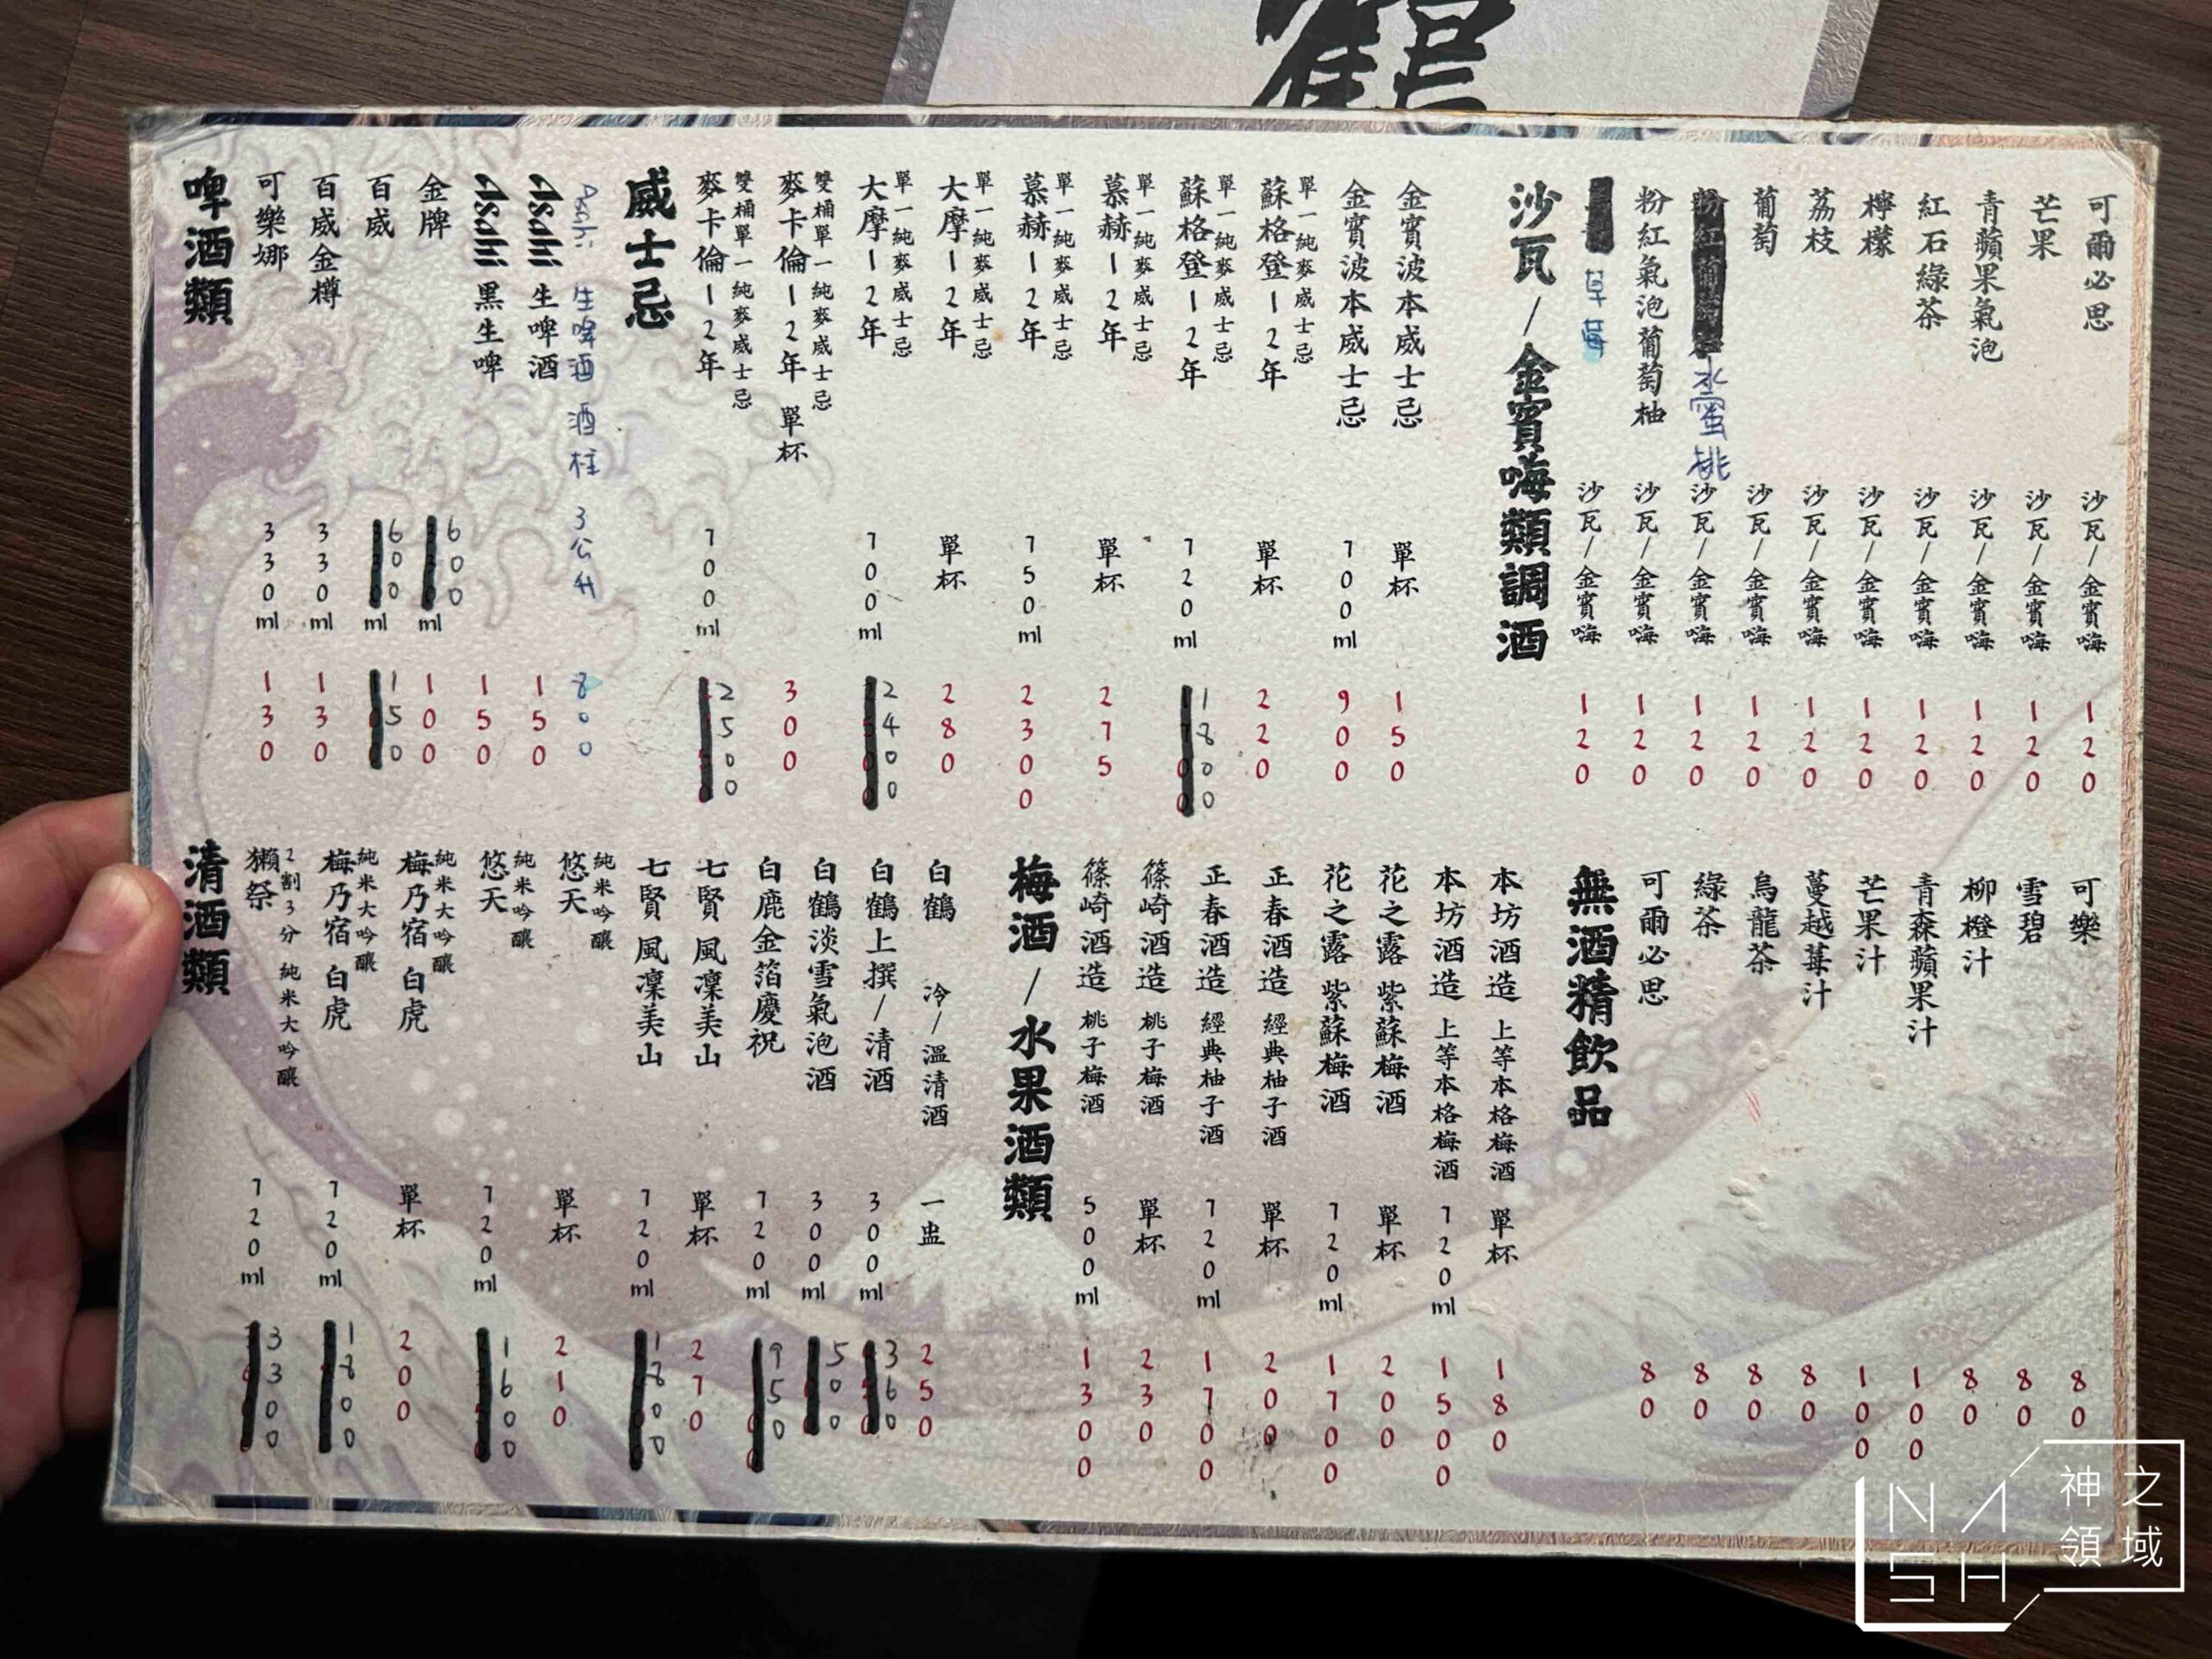 啤酒類
可樂娜 330ml 130
百威金樽 330ml 130
百威 600ml 150
金牌 600ml 100
Asahi 黑生啤 150
Asahi 生啤酒 150
Asahi 生啤酒 酒柱 3公升 800
威士忌
麥卡倫12年 雙桶單一純麥威士忌 700ml 2500
麥卡倫12年 單杯 雙桶單一純麥威士忌 300
大摩12年 單一純麥威士忌 700ml 2400
大摩12年 單一純麥威士忌 單杯 280
慕赫12年 單一純麥威士忌 750ml 2300
慕赫12年 單一純麥威士忌 單杯 275
蘇格登12年 單一純麥威士忌 720ml 1800
蘇格登12年 單一純麥威士忌 單杯 220
金賓波本威士忌 700ml 900
金賓波本威士忌 單杯 150
沙瓦/金賓嗨類調酒
草莓 沙瓦/金賓嗨 120
粉紅氣泡葡萄柚 沙瓦/金賓嗨 120
水蜜桃 沙瓦/金賓嗨 120
葡萄 沙瓦/金賓嗨 120
荔枝 沙瓦/金賓嗨 120
檸檬 沙瓦/金賓嗨 120
紅石綠茶 沙瓦/金賓嗨 120
青蘋果氣泡 沙瓦/金賓嗨 120
芒果 沙瓦/金賓嗨 120
可爾必思 沙瓦/金賓嗨 120
清酒類
獺祭 2割3分 純米大吟釀 720ml 3300
梅乃宿 白虎 純米大吟釀 720ml 1800
梅乃宿 白虎 純米大吟釀 單杯 200
悠天 純米吟釀 720ml 1600
悠天 純米吟釀 單杯 210
七賢 風凜美山 720ml 1800
七賢 風凜美山 單杯 270
白鹿金箔慶祝 720ml 950
白鶴淡雪氣泡酒 300ml 500
白鶴上撰/清酒 300ml 360
白鶴 冷/溫清酒 一盅 250
梅酒/水果酒類
篠崎酒造 桃子梅酒 500ml 1300
篠崎酒造 桃子梅酒 單杯 230
正春酒造 經典柚子酒 720ml 1700
正春酒造 經典柚子酒 單杯 200
花之露 紫蘇梅酒 720ml 1700
花之露 紫蘇梅酒 單杯 200
本坊酒造 上等本格梅酒 720ml 1500
本坊酒造 上等本格梅酒 單杯 180
無酒精飲品
可爾必思 80
綠茶 80
烏龍茶 80
蔓越莓汁 80
芒果汁 100
青森蘋果汁 100
柳橙汁 80
雪碧 80
可樂 80
NASH
神之領域